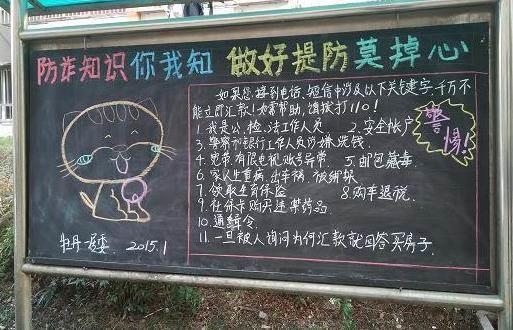 防诈知识你我知 做好提防莫掉心
如果您接到电话、短信中涉及以下关键字,千万不
能立即汇款!如需帮助,请拨打110!
1. 我是公、检、法工作人员 2. 安全帐户
3. 警察和银行工作人员涉嫌洗钱
4. 宽带有限电视账号异常 5. 邮包藏毒
6. 家人生重病、出车祸、被绑架
7. 领取生育保险 8. 购车退税.
9. 社保卡购买违禁药品
10. 通缉令.
11. 一旦被人询问为何汇款就回答买房子.
警惕!
牡丹一居委 2015.1